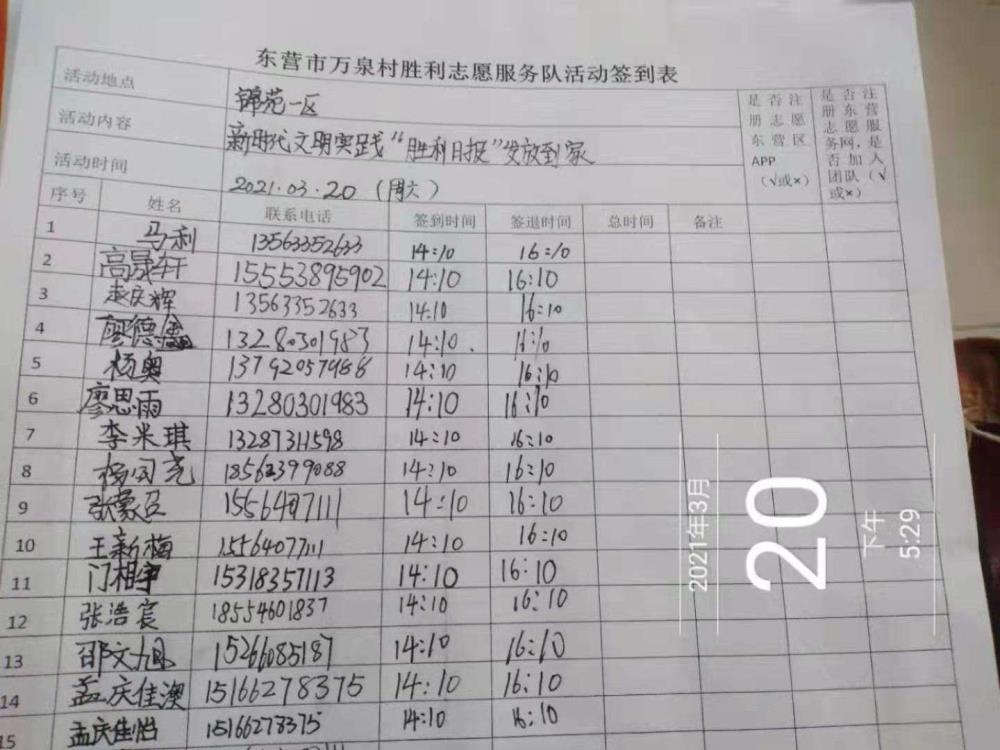 东营市万泉村胜利志愿服务队活动签到表
活动地点 锦苑一区
活动内容 新时代文明实践“胜利日报”发放到家
活动时间 2021.03.20（周六）
是否注册志愿东营区APP（√或×）
是否注册东营志愿服务网，是否加入团队（√或×）
序号 姓名 联系电话 签到时间 签退时间 总时间 备注
1 马利 13563352633 14:10 16:10
2 高晟轩 15553895902 14:10 16:10
3 庆辉 13563352633 14:10 16:10
4 廖德鑫 13280301983 14:10 16:10
5 杨奥 13792057988 14:10 16:10
6 廖思雨 13280301983 14:10 16:10
7 李米琪 13287311598 14:10 16:10
8 杨闵尧 18562399088 14:10 16:10
9 张蒙召 15564077111 14:10 16:10
10 王新梅 15564077111 14:10 16:10
11 门相争 15318357113 14:10 16:10
12 张浩宸 18554601837 14:10 16:10
13 邵文旭 15266085187 14:10 16:10
14 孟庆佳澳 15166278375 14:10 16:10
15 孟庆佳怡 15166278375 14:10 16:10
2021年3月
20
下午
5:29